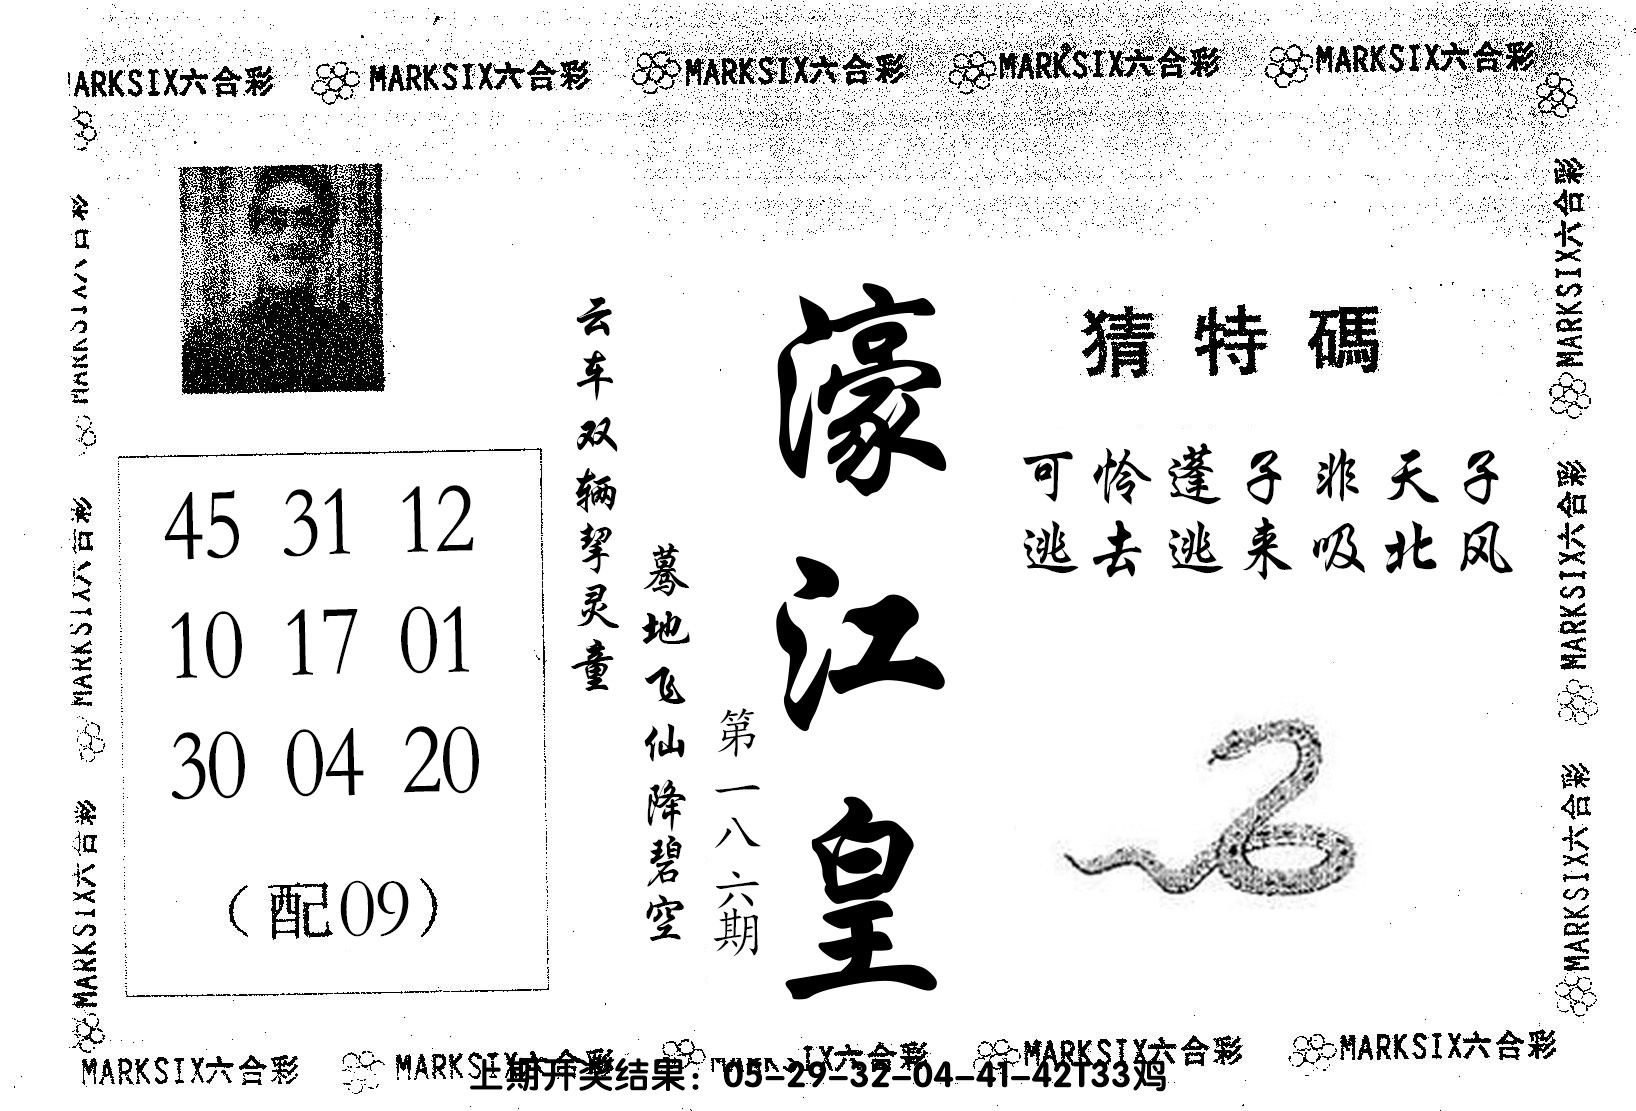 MARKSIX六合彩 MARKSIX六合彩 MARKSIX六合彩 MARKSIX六合彩 MARKSIX六合彩
濠江皇
第一八六期
云车双辆挈灵童
蓦地飞仙降碧空
猜特碼
可怜蓬子非天子
逃去逃来吸北风
45 31 12
10 17 01
30 04 20
（配09）
MARKSIX六合彩
MARKSIX六合彩
MARKSIX六合彩
MARKSIX六合彩
MARKSIX六合彩
MARKSIX六合彩
MARKSIX六合彩 MARKSIX六合彩 MARKSIX六合彩 MARKSIX六合彩 MARKSIX六合彩
上期开奖结果：05-29-32-04-41-42T33鸡